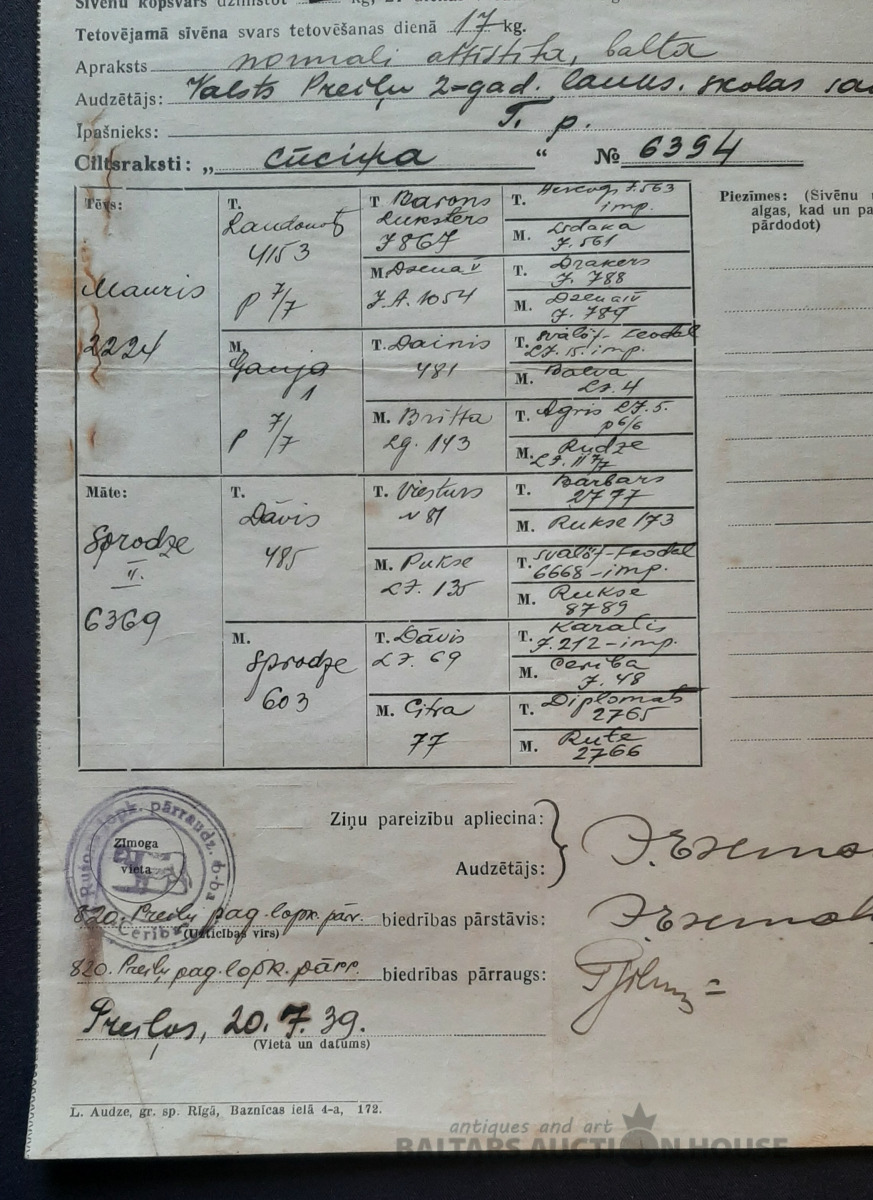 Sivēnu kopsvars dzimstot kg, 21
Tetovējamā sivēna svars tetovēšanas dienā 17 kg.
Apraksts normali attīstīta, balta
Audzētājs: Valsts Preiļu 2-gad. lauks. skolas
Īpašnieks: T. p.
Ciltsraksti: „ cūciņa “ № 6394
Piezīmes: (Sivēnu
algas, kad un pa
pārdodot)
Tēvs:
Mauris
2224
T.
4153
P 7/7
M.
Gauja
1
P 7/7
T Barons
Luksters
J 867
M. Dzena V
J.A. 1054
T. Dainis
481
M. Britta
Lg. 143
T. Hercogs J. 563
imp.
M. Lidaka
J. 561
T. Drakers
J. 788
M. Dzena IV
J. 789
T. Svälöf-Leodal
LJ. 15. imp.
M. Balva
LJ. 4
T. Agris LJ. 5.
p 6/6
M. Rudze
LJ. II 7/7
Māte:
Sprodze
II.
6369
T.
Dāvis
485
M.
Sprodze
603
T. Viesturs
N 81
M. Pukse
LJ. 135
T. Dāvis
LJ. 69
M. Citra
77
T. Barbars
2777
M. Rukse 173
T. Svälöf-Leodal
6668-imp.
M. Rukse
8789
T. Karalis
J. 212-imp.
M. Cerība
J. 48
T. Diplomats
2765
M. Rute
2766
Ziņu pareizību apliecina:
Audzētājs:
lopk. pārraudz. b-ba
Cerība
Zīmoga
vieta
820. Preiļu pag. lopk. pārr. biedrības pārstāvis:
(Uzticības vīrs)
820. Preiļu pag. lopk. pārr. biedrības pārraugs:
Preiļos, 20. 7. 39.
(Vieta un datums)
L. Audze, gr. sp. Rīgā, Baznīcas ielā 4-a, 172.
antiques and art
BALTARS AUCTION HOUSE